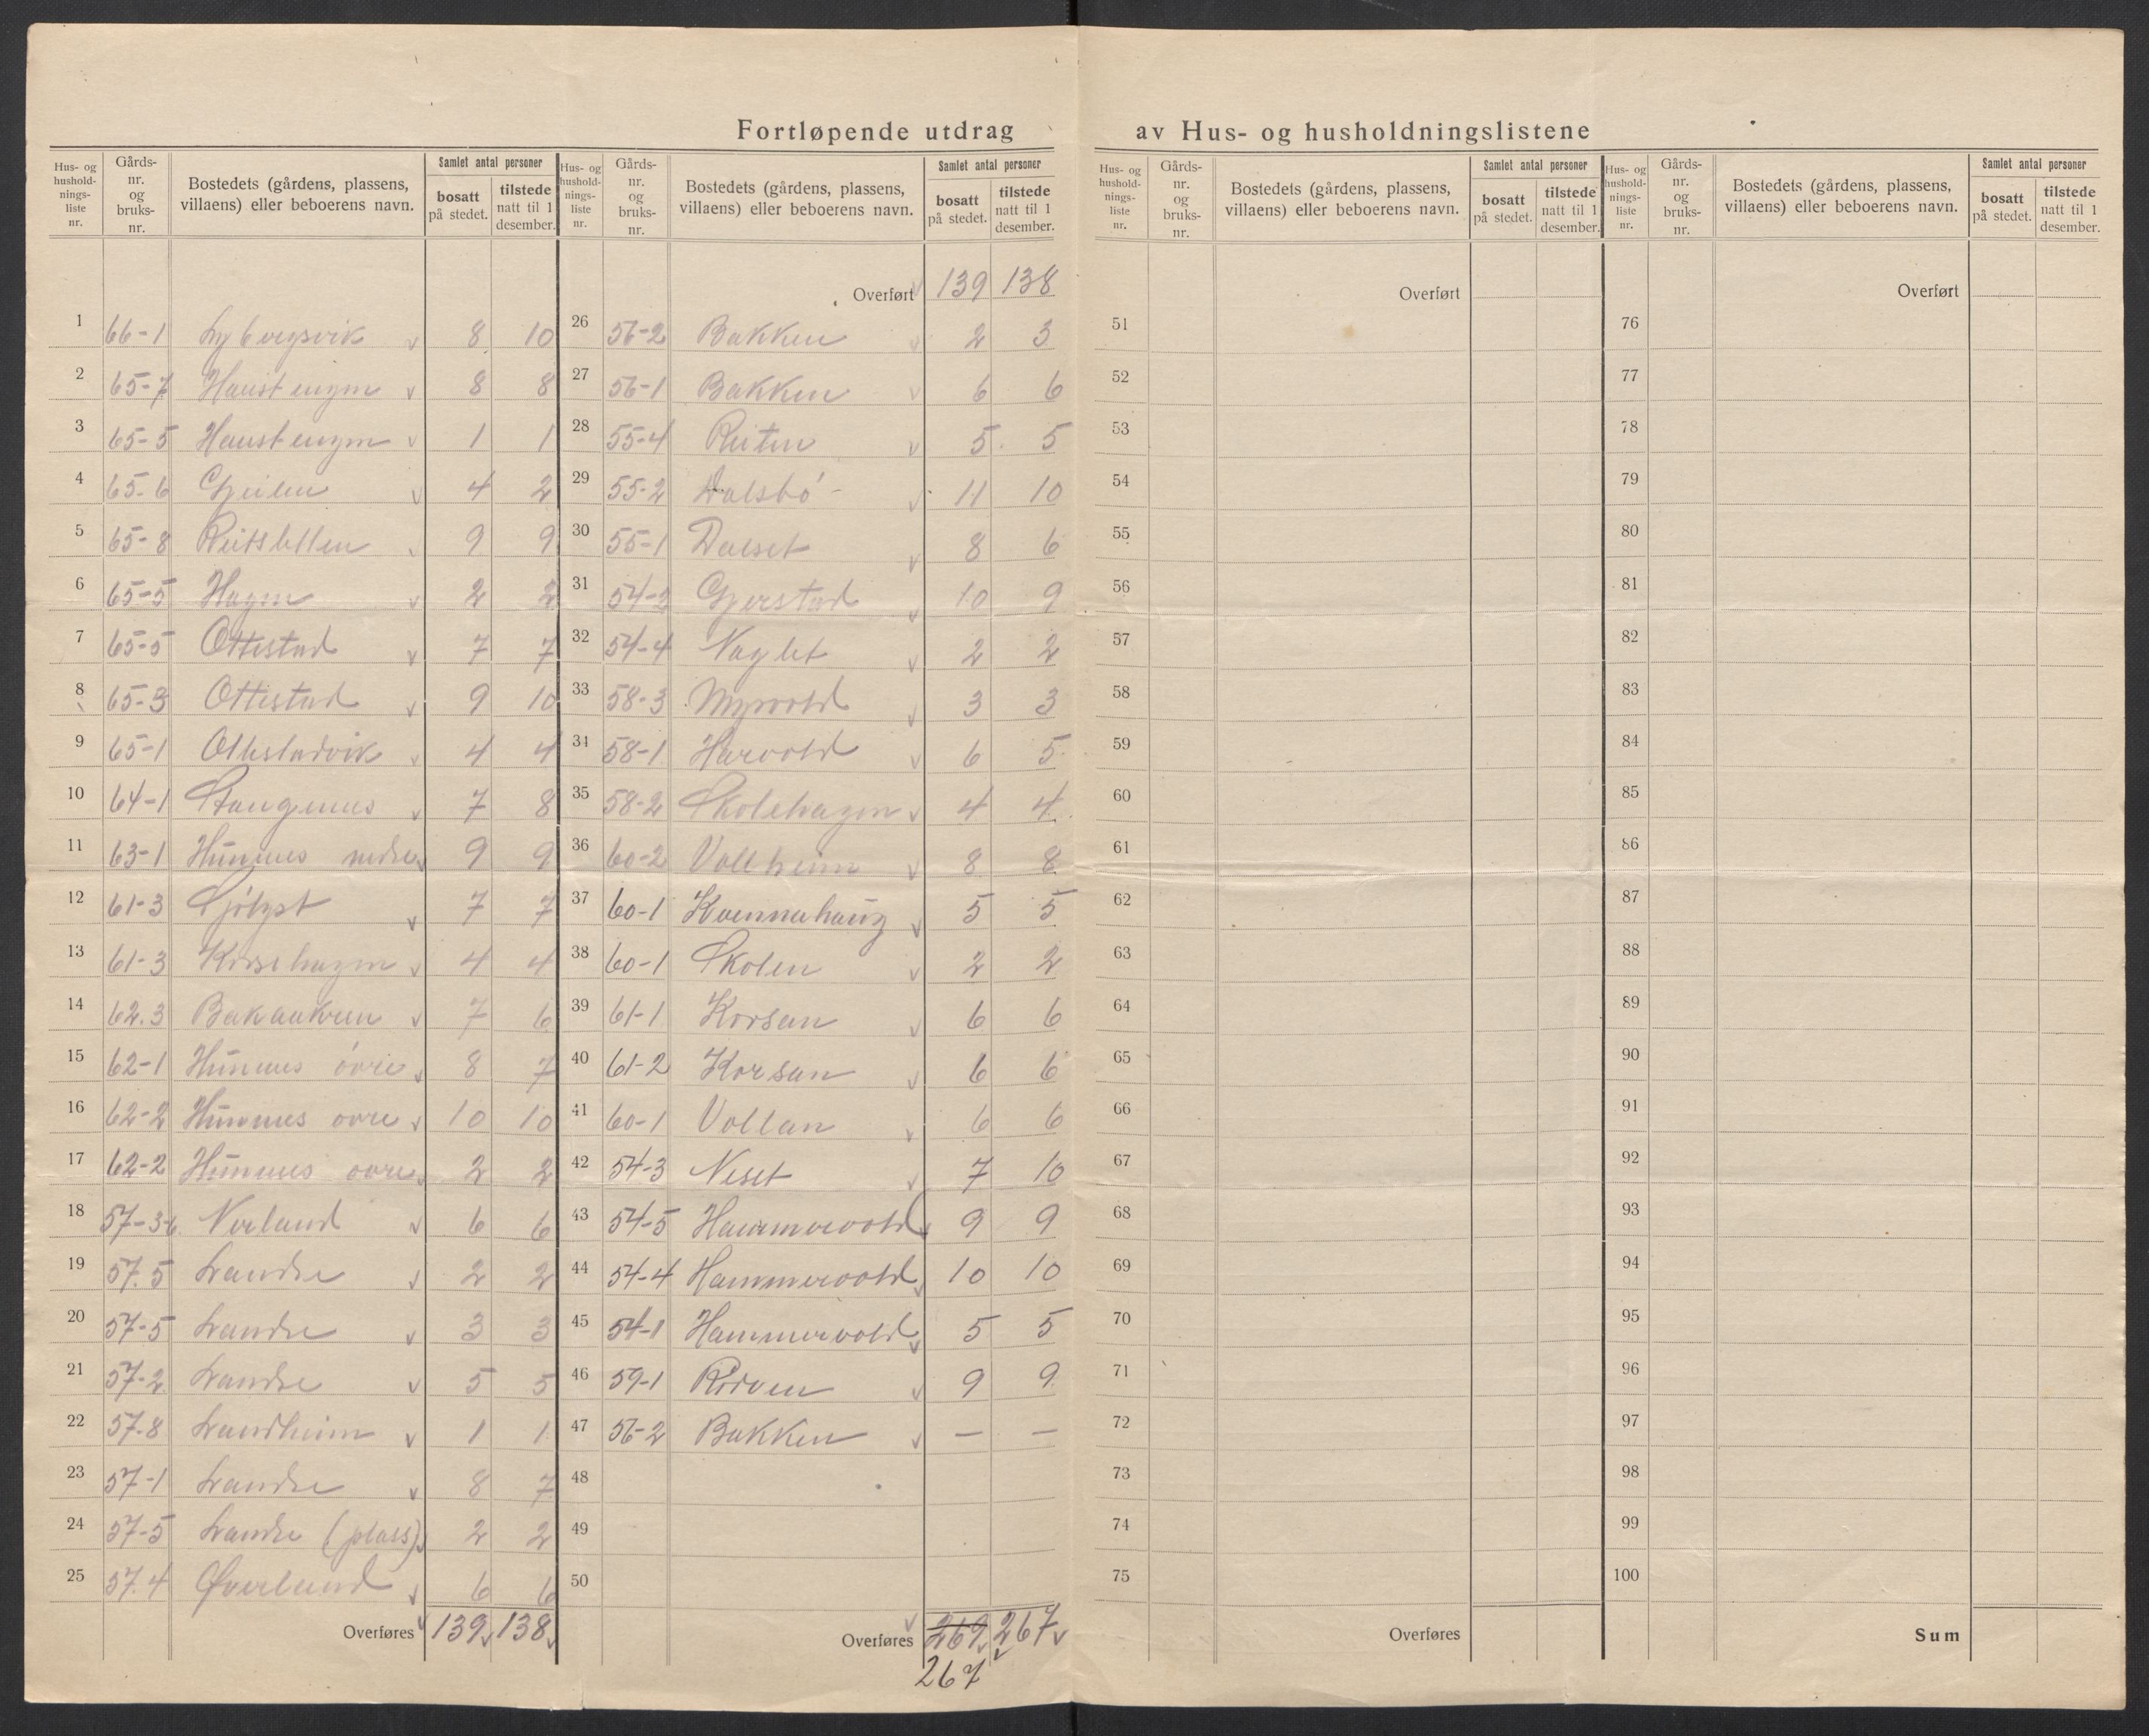 Fortløpende utdrag av Hus- og husholdningslistene
Hus- og hushold-nings-liste nr. Gårds-nr. og bruks-nr. Bostedets (gårdens, plassens, villaens) eller beboerens navn. Samlet antal personer bosatt på stedet. tilstede natt til 1 desember.
1 66-1 8 10
2 65-7 8 8
3 65-5 1 1
4 65-6 4 2
5 65-8 Reitsletten 9 9
6 65-5 Hagen 2 2
7 65-5 Ottestad 7 7
8 65-3 Ottestad 9 10
9 65-1 Ottestadvik 4 4
10 64-1 7 8
11 63-1 Hunnes nedre 9 9
12 61-3 7 7
13 61-3 Korsehagen 4 4
14 62.3 7 6
15 62-1 Hunnes övre 8 7
16 62-2 Hunnes ovre 10 10
17 62-2 Hunnes ovre 2 2
18 57-3-6 Norland 6 6
19 57.5 Landre 2 2
20 57-5 Landre 3 3
21 57-2 Landre 5 5
22 57-8 Landheim 1 1
23 57-1 Landre 8 7
24 57-5 Landre (plass) 2 2
25 57.4 Øverland 6 6
Overføres 139 138
Hus- og hushold-nings-liste nr. Gårds-nr. og bruks-nr. Bostedets (gårdens, plassens, villaens) eller beboerens navn. Samlet antal personer bosatt på stedet. tilstede natt til 1 desember.
Overført 139 138
26 56-2 Bakken 2 3
27 56-1 Bakken 6 6
28 55-4 Reiten 5 5
29 55-2 Dalsbó 11 10
30 55-1 Dalset 8 6
31 54-2 Gjerstad 10 9
32 54-4 Naglet 2 2
33 58-3 Myrvold 3 3
34 58-1 Harvold 6 5
35 58-2 Skolehagen 4 4
36 60-2 Vollheim 8 8
37 60-1 Kvennahaug 5 5
38 60-1 Skolen 2 2
39 61-1 Korsan 6 6
40 61-2 Korsan 6 6
41 60-1 Vollan 6 6
42 54-3 Neset 7 10
43 54-5 Hammervold 9 9
44 54-4 Hammervold 10 10
45 54-1 Hammervold 5 5
46 59-1 Rödven 9 9
47 56-2 Bakken — —
48
49
50
Overføres 269 267
267
Hus- og hushold-nings-liste nr. Gårds-nr. og bruks-nr. Bostedets (gårdens, plassens, villaens) eller beboerens navn. Samlet antal personer bosatt på stedet. tilstede natt til 1 desember.
Overført
51
52
53
54
55
56
57
58
59
60
61
62
63
64
65
66
67
68
69
70
71
72
73
74
75
Overføres
Hus- og hushold-nings-liste nr. Gårds-nr. og bruks-nr. Bostedets (gårdens, plassens, villaens) eller beboerens navn. Samlet antal personer bosatt på stedet. tilstede natt til 1 desember.
Overført
76
77
78
79
80
81
82
83
84
85
86
87
88
89
90
91
92
93
94
95
96
97
98
99
100
Sum